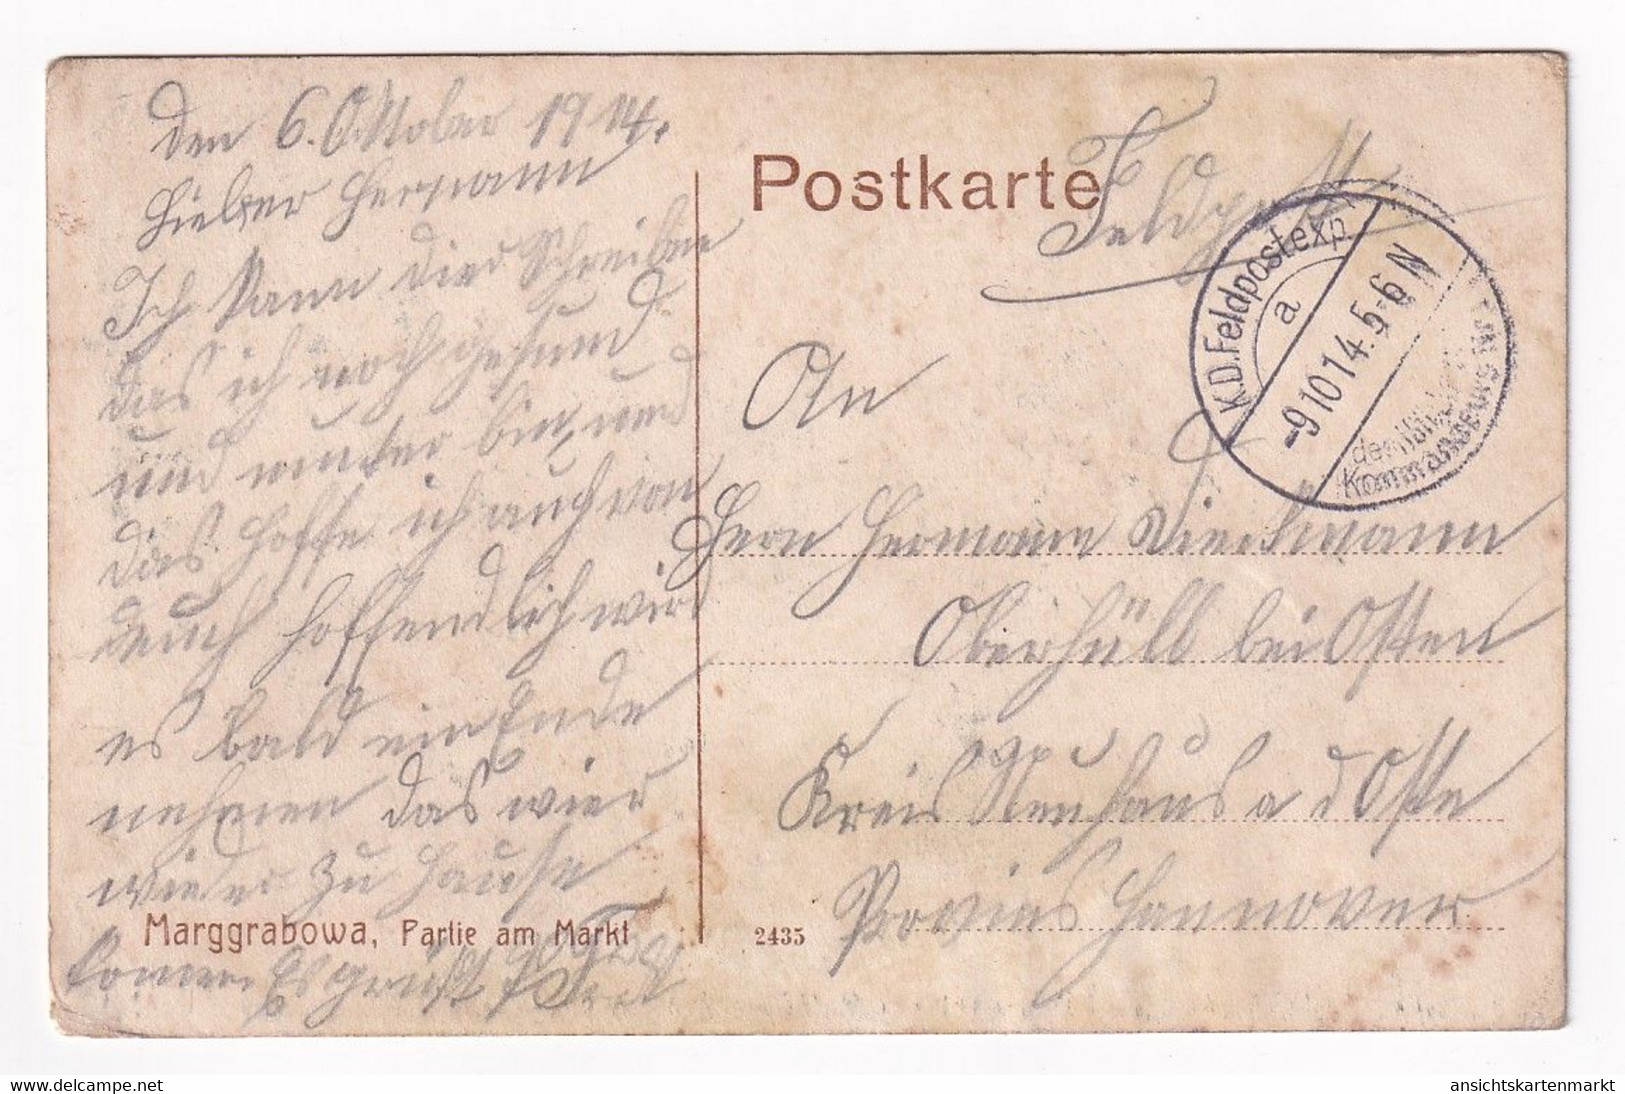 den 6. Oktober 1914.
Lieber Hermann
Ich kann dier Schreiben
das ich noch gesund
und munter bin, und
das hoffe ich auch von
euch hoffendlich wird
es bald ein Ende
nehmen das wier
wieder zu Hause
kommen Es grüßt
Marggrabowa, Partie am Markt
Postkarte
Feldpost
K.D. Feldpostexp.
a
-9 10 14. 5-6 N
der
An
Herrn Hermann Dieckmann
Oberhüll bei Osten
Kreis Neuhaus a d Oste
Provins Hannover
2435
ansichtskartenmarkt
delcampe.net